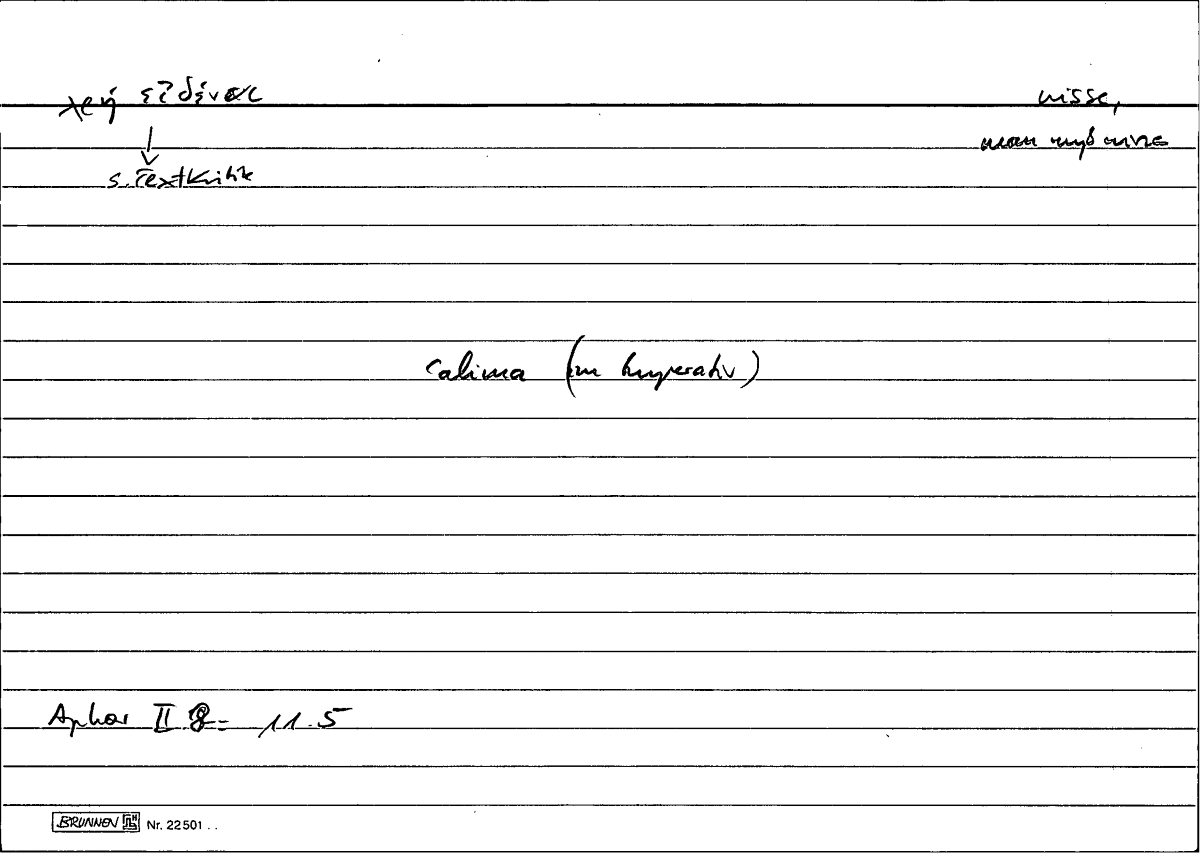 χρὴ εἰδέναι
wisse,
man muß wissen
s. Textkritik
calima (im Imperativ)
Aphor II 8 = 11.5
BRUNNEN Nr. 22501 ..